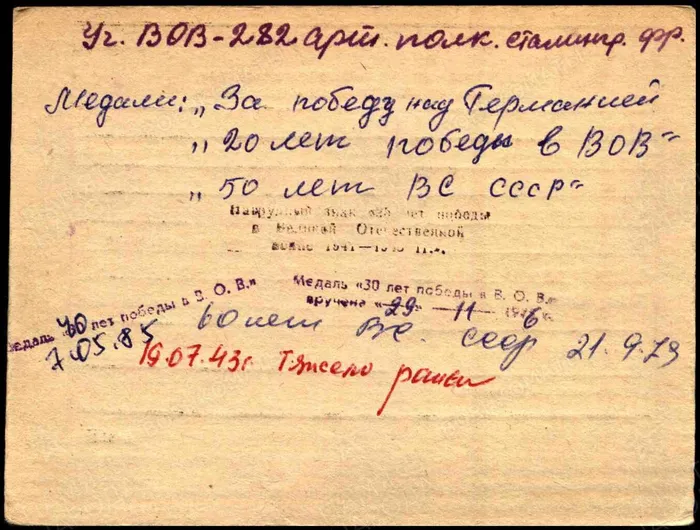 Уч. ВОВ-282 арт. полк. сталингр. фр.
Медали: „За победу над Германией
„20 лет победы в ВОВ"
„50 лет ВС СССР"
Нагрудный знак «25 лет победы
в Великой Отечественной
войне 1941—1945 гг.».
Медаль «30 лет победы в В. О. В.»
вручена «29» 11 1976
Медаль 40 лет победы в В. О. В.»
7.05.85
60 лет ВС. СССР 21.9.79
19.07.43г. Тяжело ранен